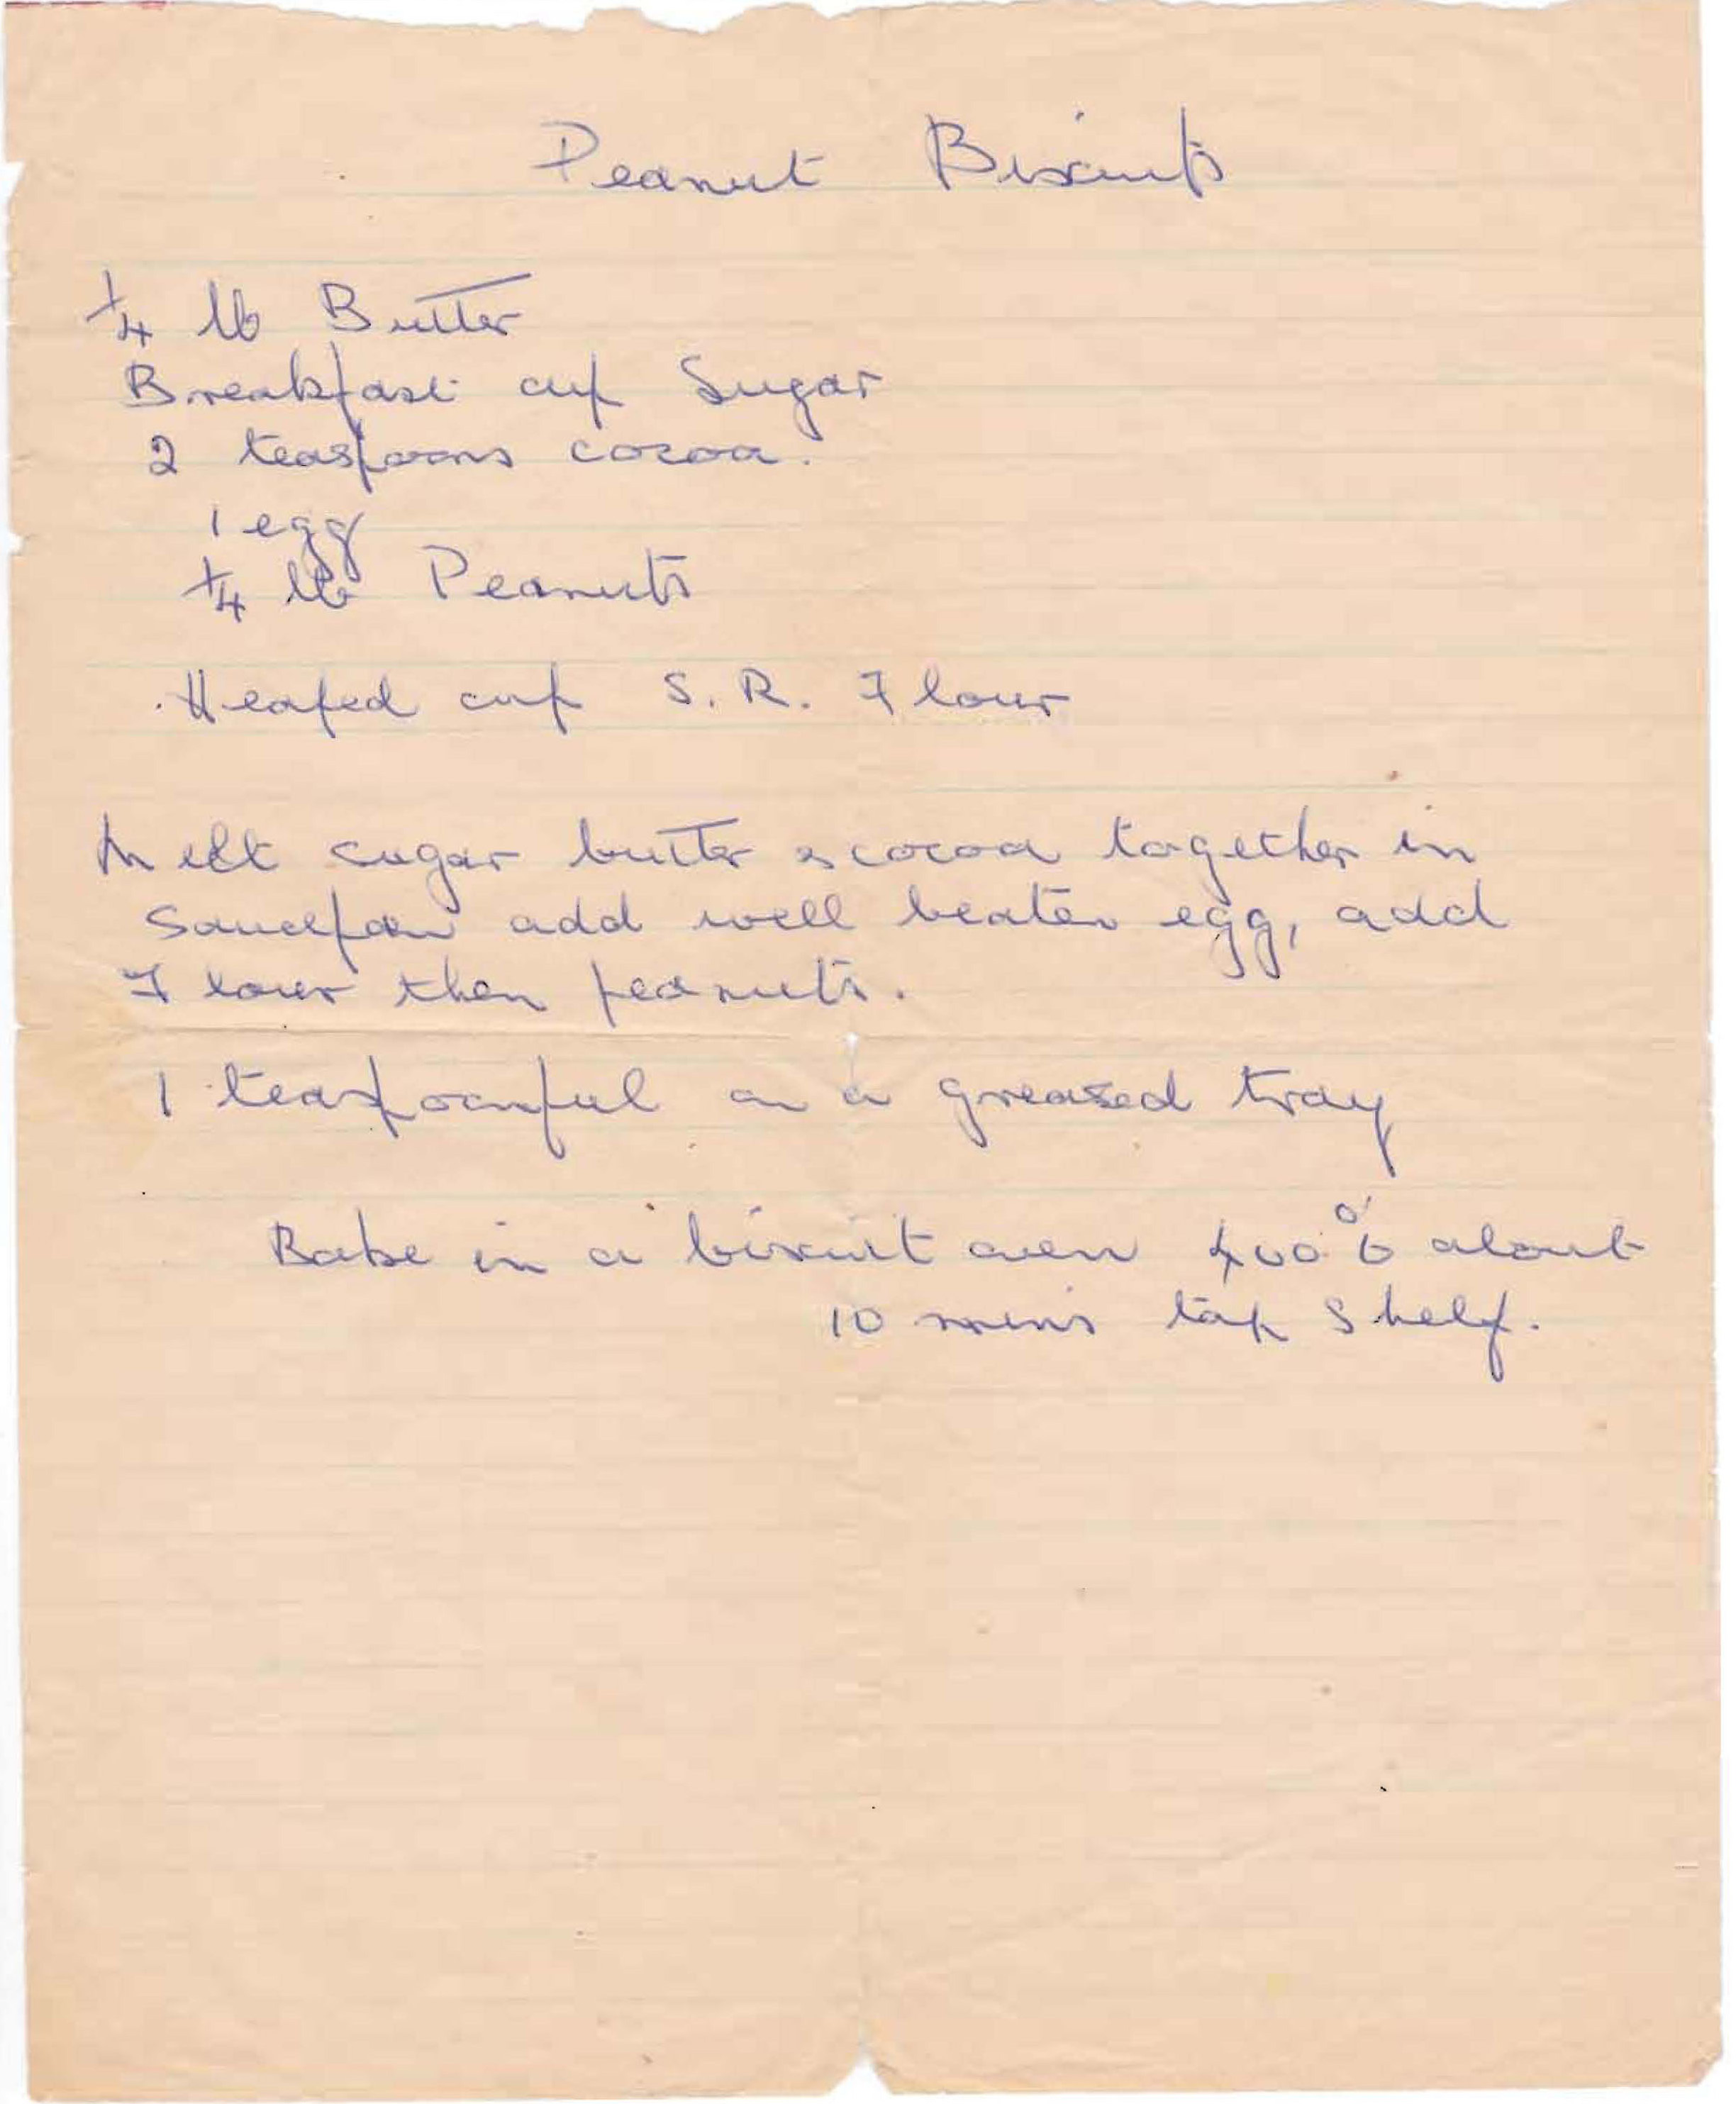 Peanut Biscuits
1/4 lb Butter
Breakfast cup Sugar
2 teaspoons cocoa.
1 egg
1/4 lb Peanuts
Heaped cup S. R. Flour
Melt sugar butter & cocoa together in
saucepan add well beaten egg, add
Flour then peanuts.
1 teaspoonful on a greased tray
Bake in a biscuit oven 400° about
10 mins top shelf.